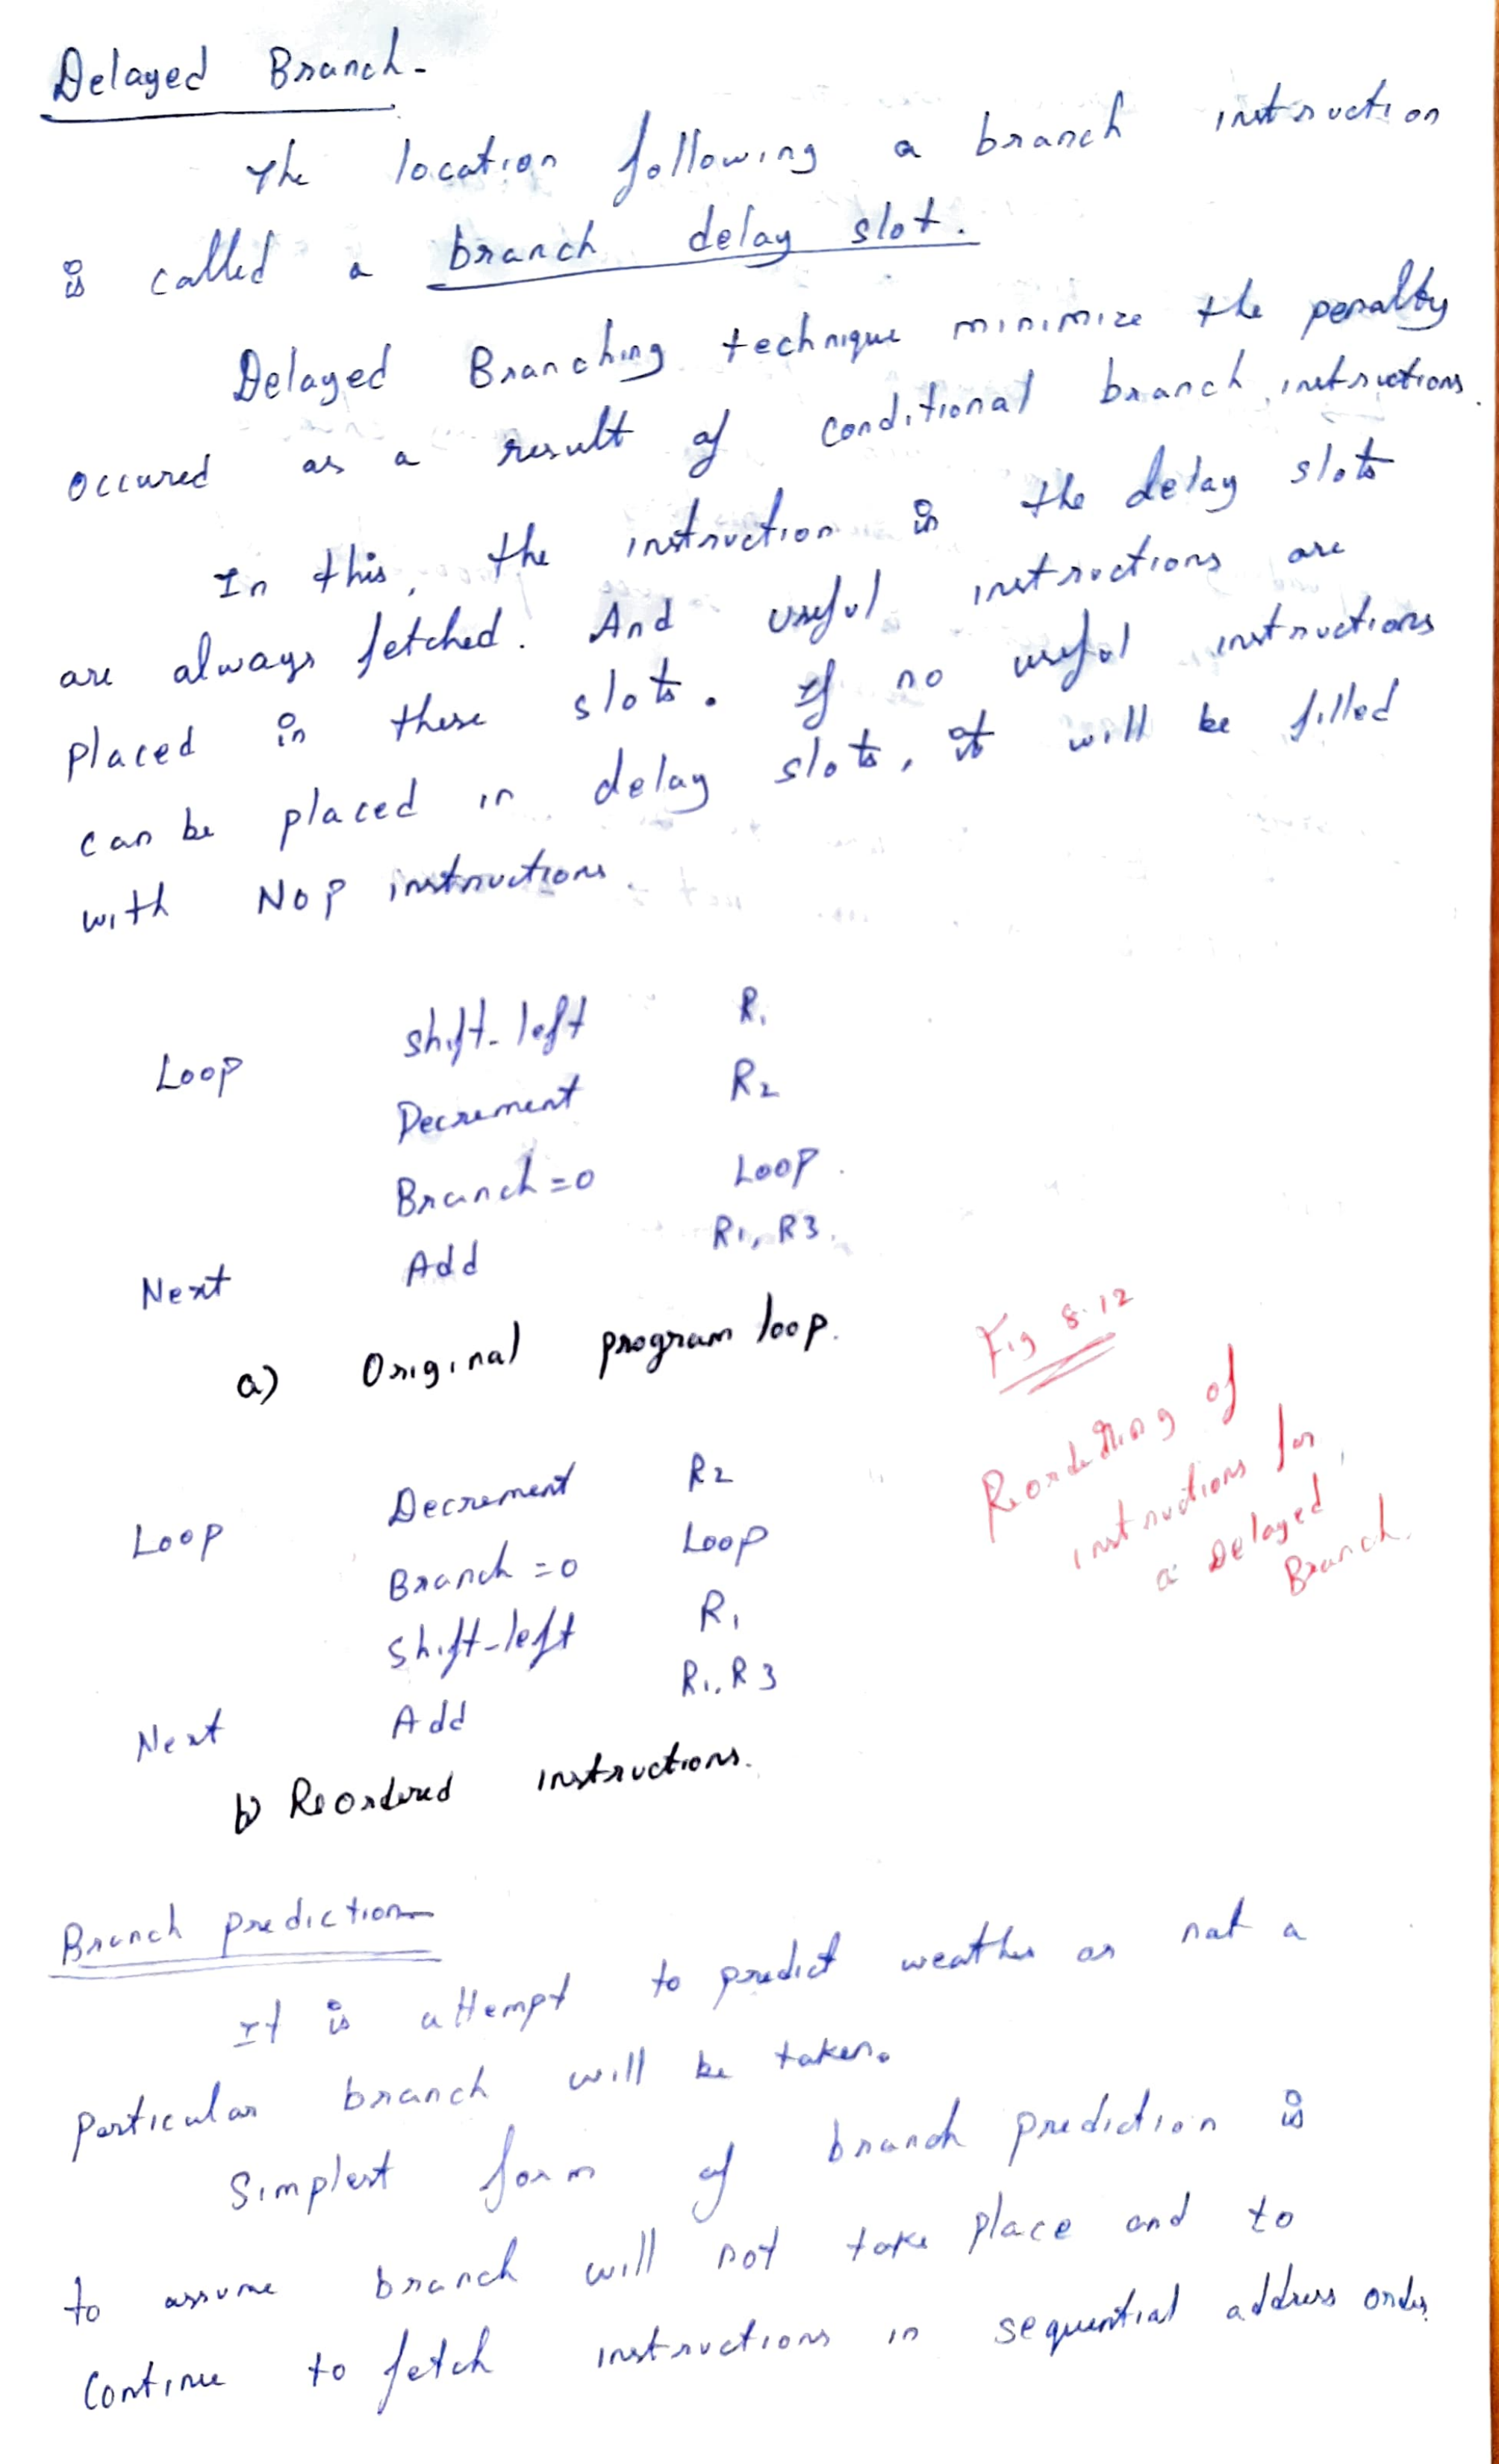 Delayed Branch-
The location following a branch instruction
is called a branch delay slot.
Delayed Branching technique minimize the penalty
occured as a result of conditional branch instructions.
In this, the instruction in the delay slots
are always fetched. And useful instructions are
placed in these slots. If no useful instructions
can be placed in delay slots, it will be filled
with NOP instructions.
Loop shift-left R1
Decrement R2
Branch=0 Loop
Next Add R1, R3.
a) Original program loop.
Fig 8.12
Reordering of
instructions for
a Delayed
Branch.
Loop Decrement R2
Branch=0 Loop
Shift-left R1
Next Add R1, R3
b) Reordered instructions.
Branch prediction
It is attempt to predict weather or not a
particular branch will be taken.
Simplest form of branch prediction is
to assume branch will not take place and to
continue to fetch instructions in sequential address order.